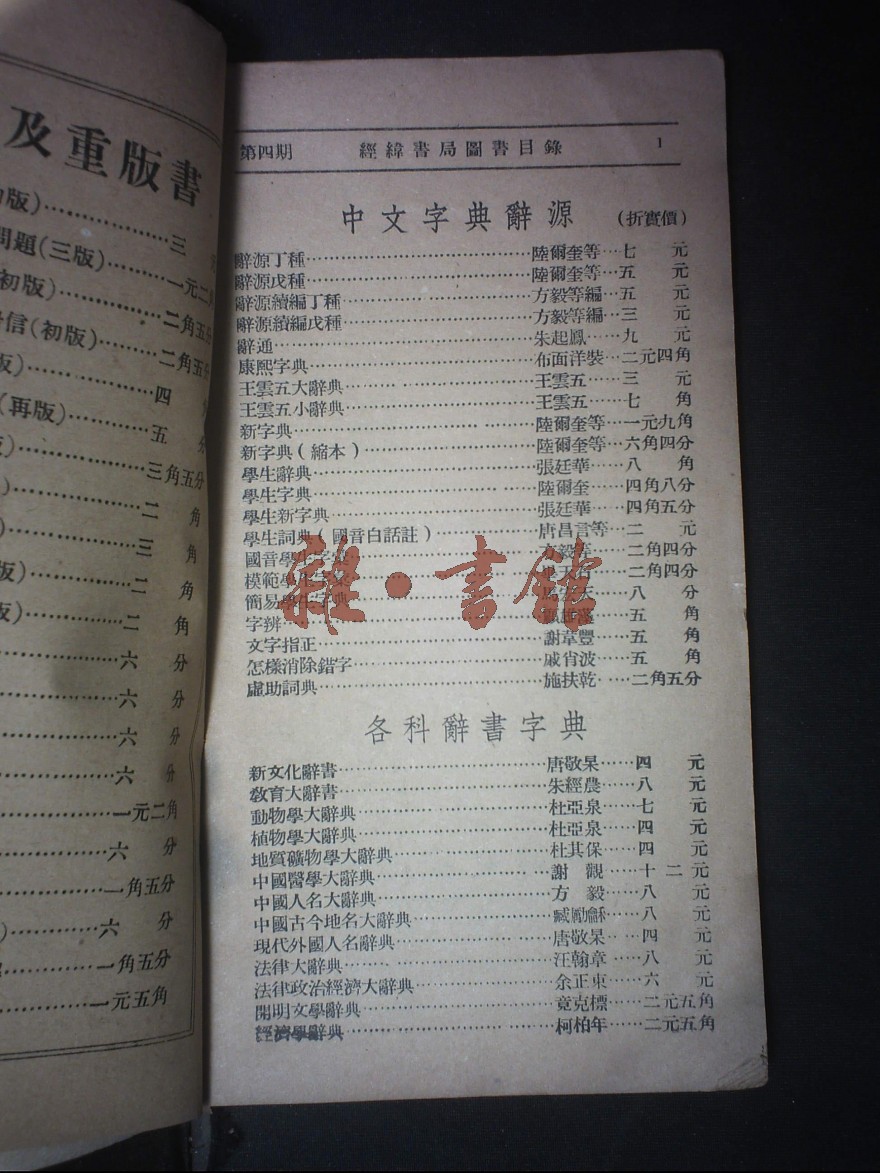 及重版書
版)……三
問題(三版)……一元二
初版)……二角五分
信(初版)……二角五分
版)……四
(再版)……五 分
版)……三角五分
)……二 角
)……三 角
版)……二 角
版)……二 角
……六 分
……六 分
……六 分
……六 分
……一元二角
……六 分
……一角五分
)……六 分
……一角五分
……一元五角
第四期 經緯書局圖書目錄 1
中文字典辭源 (折實價)
辭源丁種……陸爾奎等…七 元
辭源戊種……陸爾奎等…五 元
辭源續編丁種……方毅等編…五 元
辭源續編戊種……方毅等編…三 元
辭通……朱起鳳……九 元
康熙字典……布面洋裝…二元四角
王雲五大辭典……王雲五……三 元
王雲五小辭典……王雲五……七 角
新字典……陸爾奎等…一元九角
新字典(縮本)……陸爾奎等…六角四分
學生辭典……張廷華……八 角
學生字典……陸爾奎……四角八分
學生新字典……張廷華……四角五分
學生詞典(國音白話註)……唐昌言等…二 元
國音學生字……方毅等…二角四分
模範學生字……二角四分
簡易學生字典……八 分
字辨……顧雄藻……五 角
文字指正……謝章豐……五 角
怎樣消除錯字……戚肖波……五 角
虛助詞典……施扶乾…二角五分
雜·書館
各科辭書字典
新文化辭書……唐敬杲……四 元
敎育大辭書……朱經農……八 元
動物學大辭典……杜亞泉……七 元
植物學大辭典……杜亞泉……四 元
地質礦物學大辭典……杜其保……四 元
中國醫學大辭典……謝 觀……十二元
中國人名大辭典……方 毅……八 元
中國古今地名大辭典……臧勵龢……八 元
現代外國人名辭典……唐敬杲…四 元
法律大辭典……汪翰章……八 元
法律政治經濟大辭典……余正東……六 元
開明文學辭典……章克標……二元五角
經濟學辭典……柯柏年……二元五角